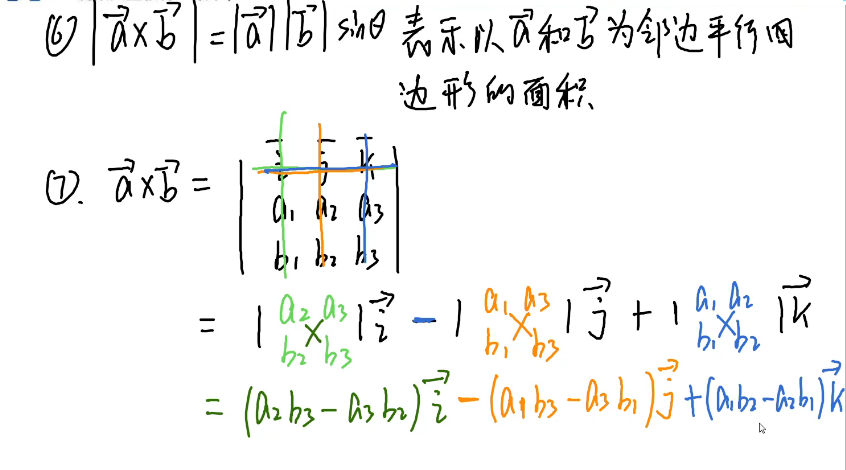 ⑥ |a⃗×b⃗| = |a⃗||b⃗| sinθ 表示以a⃗和b⃗为邻边平行四
边形的面积
⑦. a⃗×b⃗ = | i⃗ j⃗ k⃗ |
| a₁ a₂ a₃ |
| b₁ b₂ b₃ |
= | a₂ a₃ | i⃗ − | a₁ a₃ | j⃗ + | a₁ a₂ | k⃗
| b₂ b₃ | | b₁ b₃ | | b₁ b₂ |
= (a₂b₃ − a₃b₂) i⃗ − (a₁b₃ − a₃b₁) j⃗ + (a₁b₂ − a₂b₁) k⃗